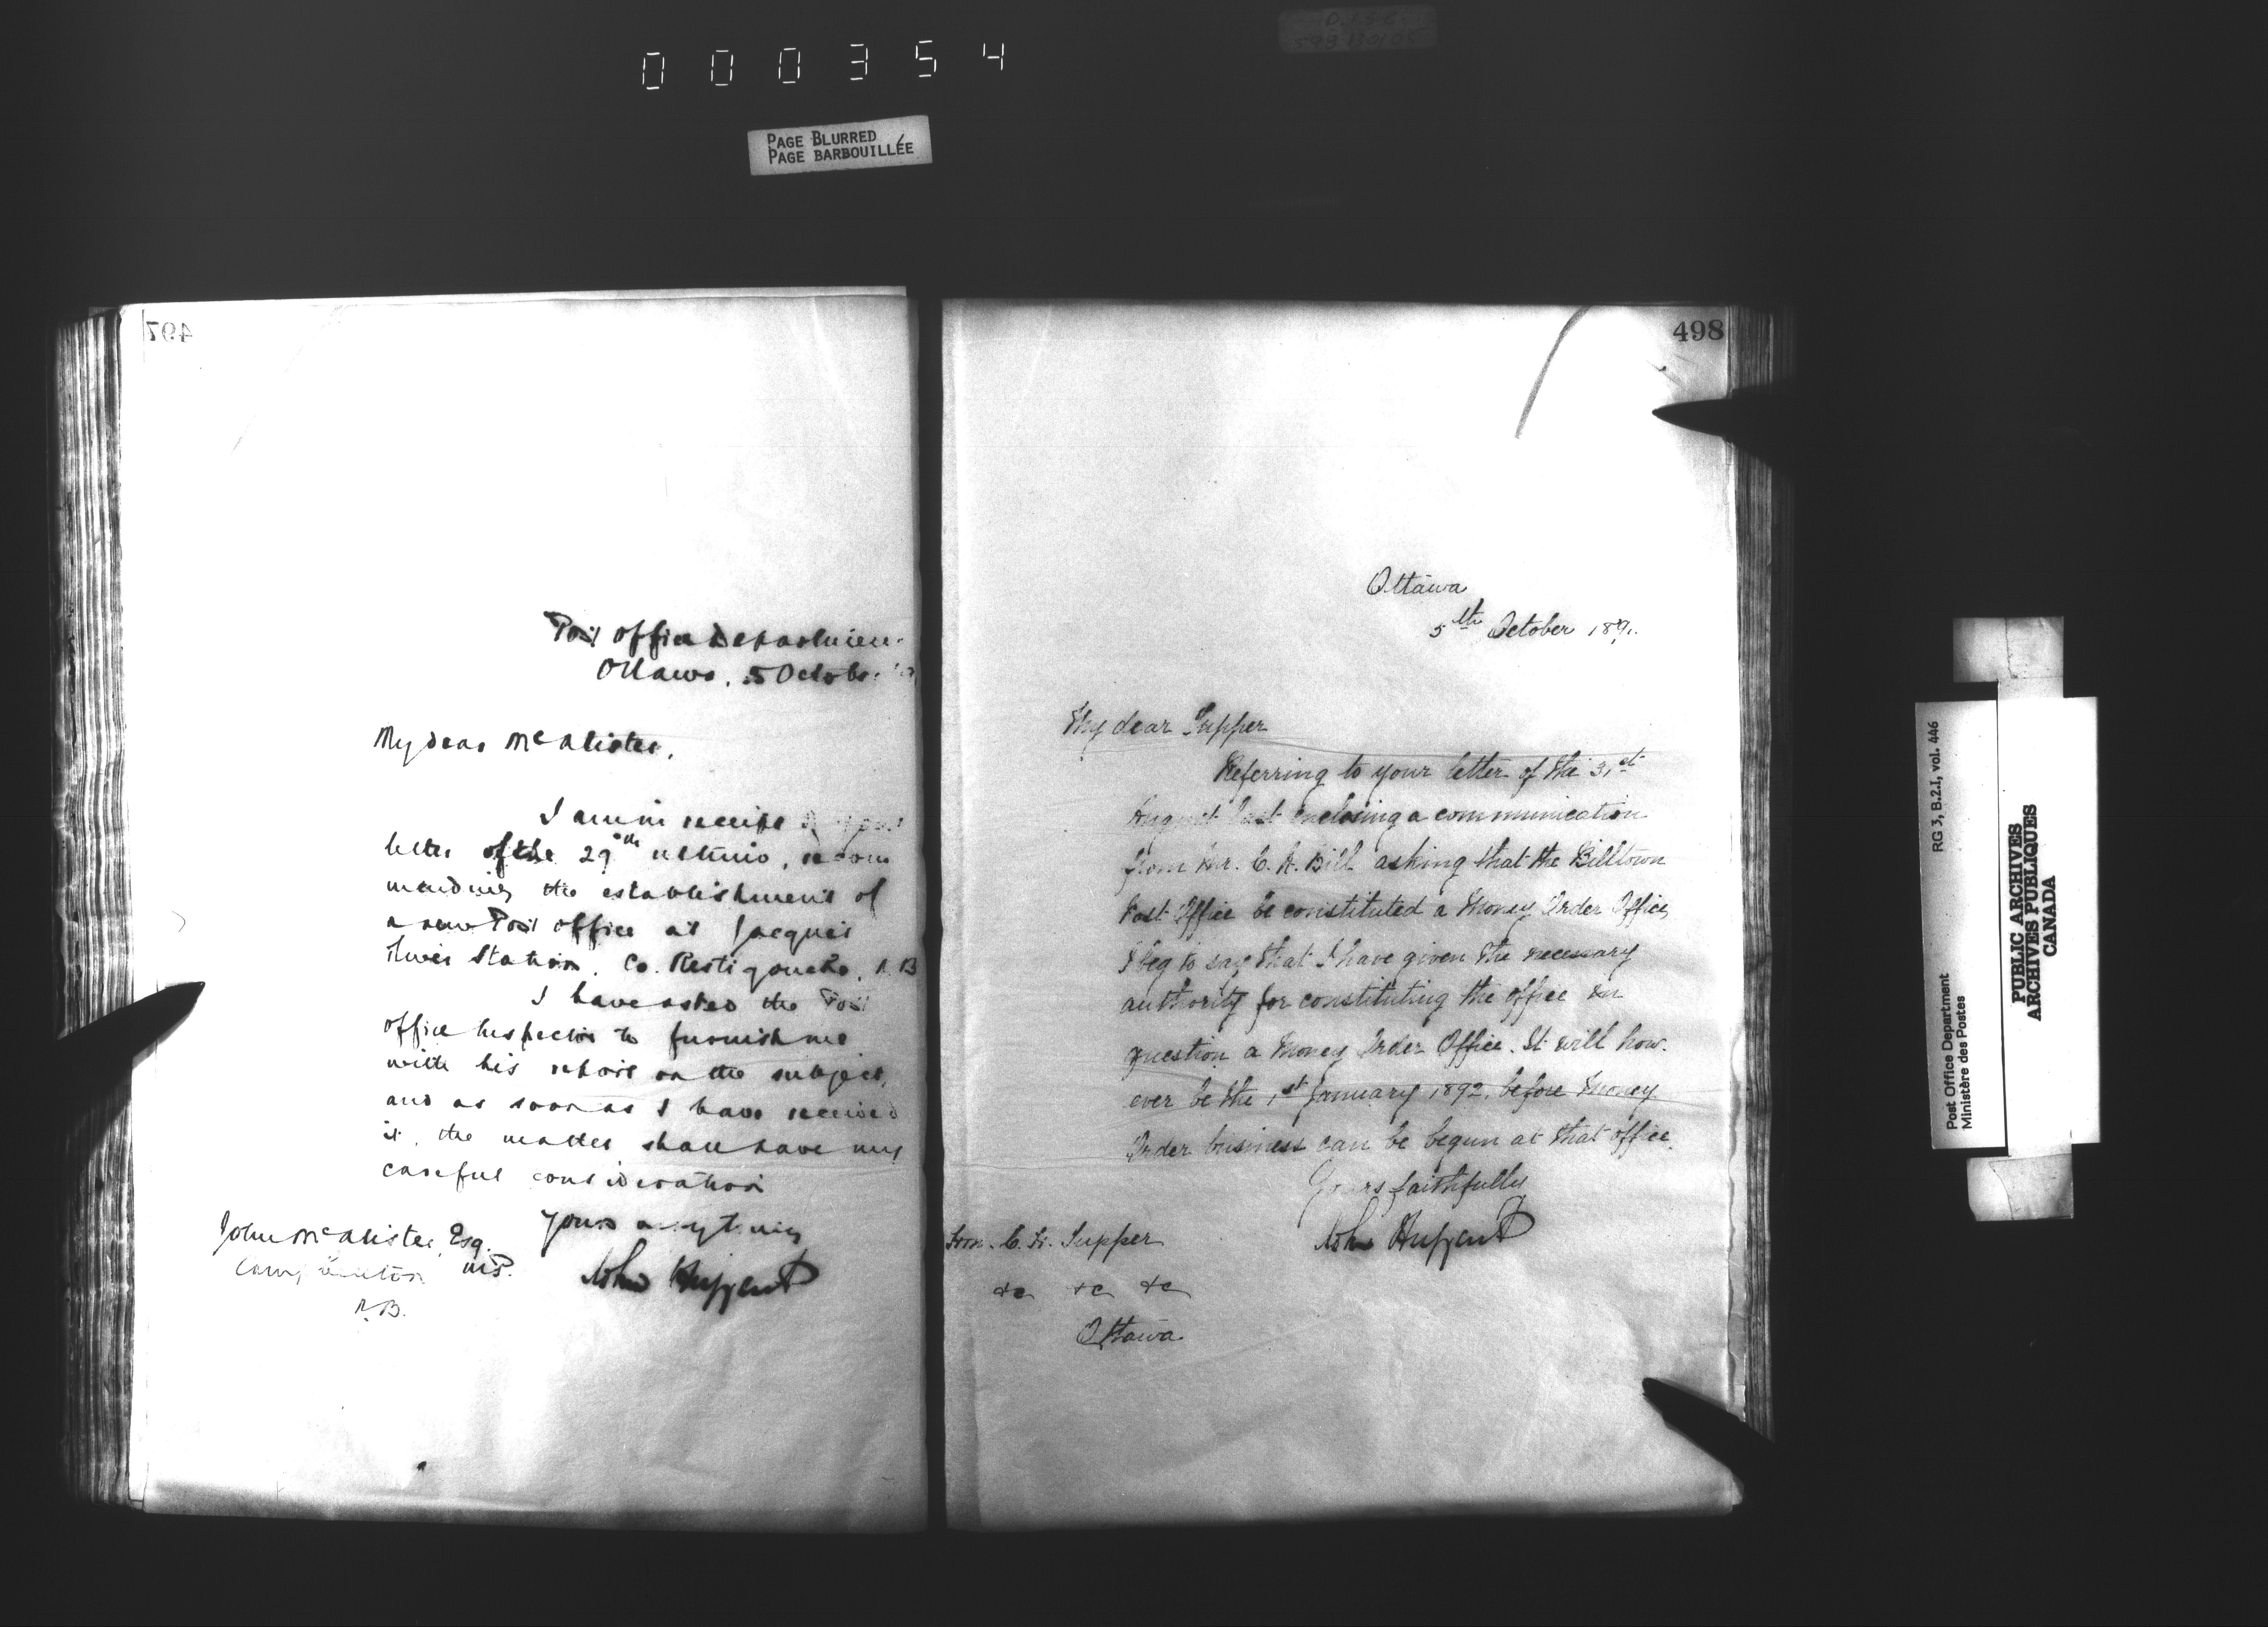 000354
PAGE BLURRED
PAGE BARBOUILLÉE
497
Post Office Departmen
Ottawa, 5 Octobe
My dear McAlister,
I am in receipt of your
letter of the 29th ultimo, recom
mending the establishment of
a new Post office at Jacquet
River Station, Co. Restigouche, N.B
I have asked the Post
office Inspector to furnish me
with his report on the subject,
and as soon as I have received
it, the matter shall have my
careful consideration
Yours
John McAlister, Esq.
M.P.
N.B.
John Haggart
498
Ottawa
5th October 1891.
My dear Tupper
Referring to your letter of the 31st
August last enclosing a communication
from Mr. C. R. Bill asking that the Billtown
Post Office be constituted a Money Order Office,
I beg to say that I have given the necessary
authority for constituting the office in
question a Money Order Office. It will how-
ever be the 1st January 1892, before Money
Order business can be begun at that office.
Yours faithfully
John Haggart
Hon. C. H. Tupper
&c &c &c
Ottawa
RG 3, B.2.1, vol. 446
Post Office Department
Ministère des Postes
PUBLIC ARCHIVES
ARCHIVES PUBLIQUES
CANADA